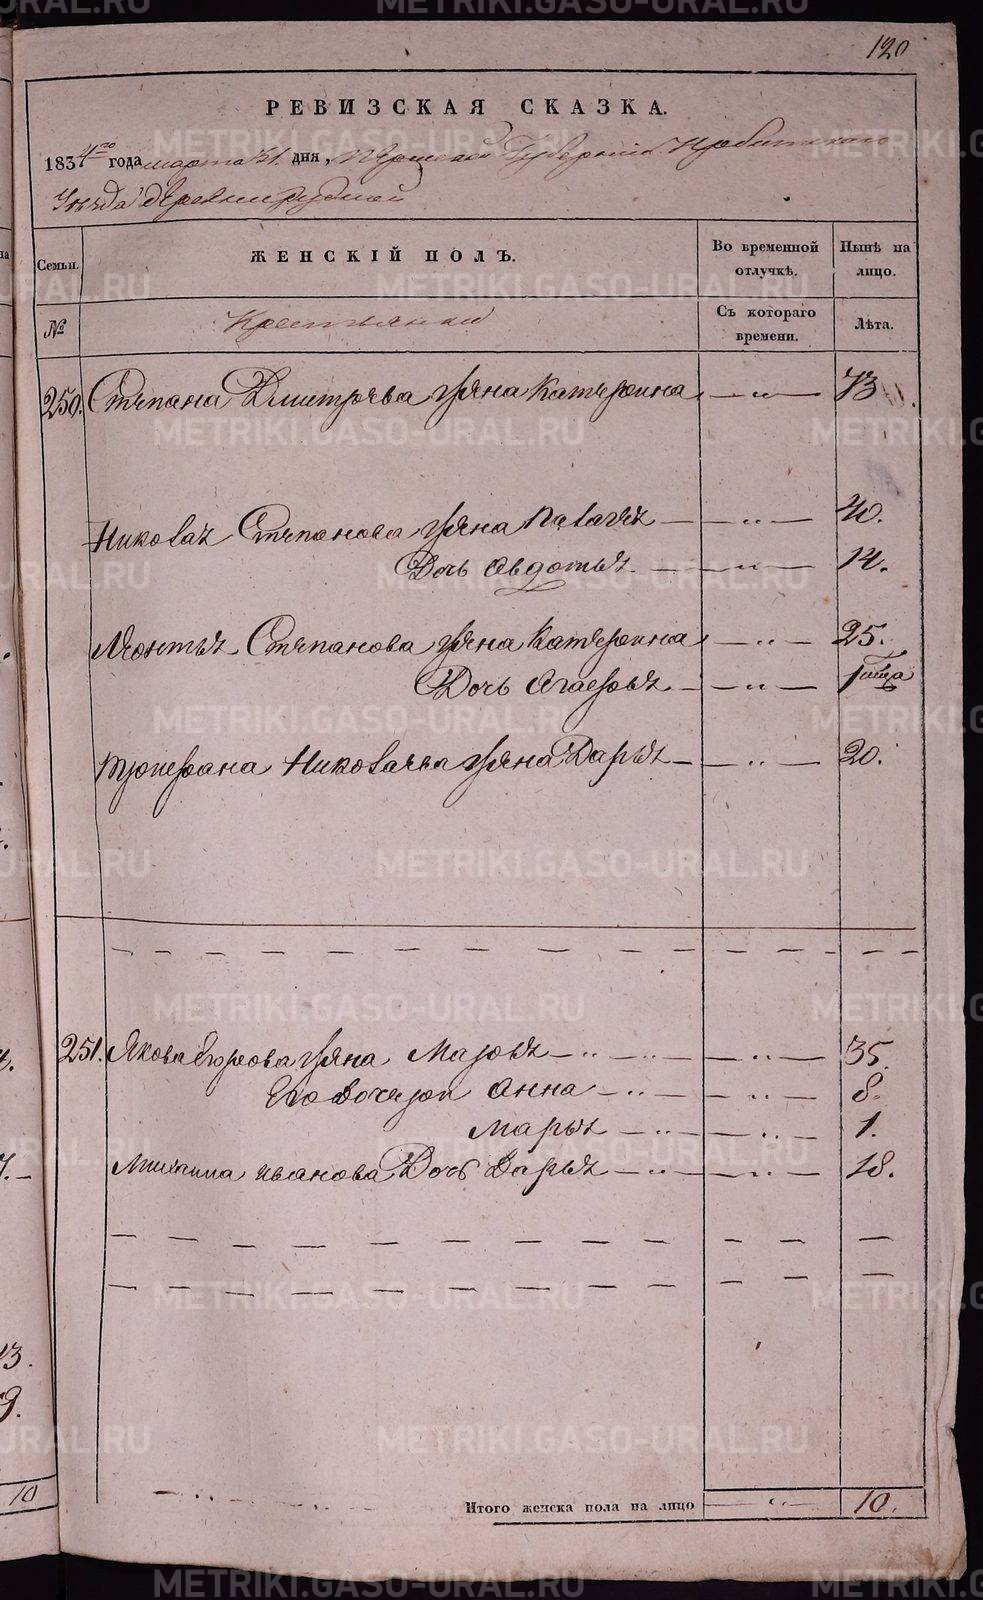 120
РЕВИЗСКАЯ СКАЗКА.
1834го года марта 31. дня, Пермской Губернiи Ирбитскаго
Уѣзда деревни Рудной
Семьи. ЖЕНСКIЙ ПОЛЪ. Во временной отлучкѣ. Нынѣ на лицо.
№ Крестьянки Съ котораго времени. Лѣта.
250. Степана Дмитрева жена Катерина — „ — 73.
Николая Степанова жена Наталья — „ — 40.
Дочь Авдотья — „ — 14.
Леонтья Степанова жена Катерина — „ — 25.
Дочь Агафья — „ —
Трофима Николаева жена Дарья — „ — 20.
251. Якова жена Марфа — „ — 35.
Его дочери Анна — „ — 8.
Марья — „ — 1.
Михаила Иванова Дочь Дарья — „ — 18.
Итого женска пола на лицо — „ — 10.
METRIKI.GASO-URAL.RU